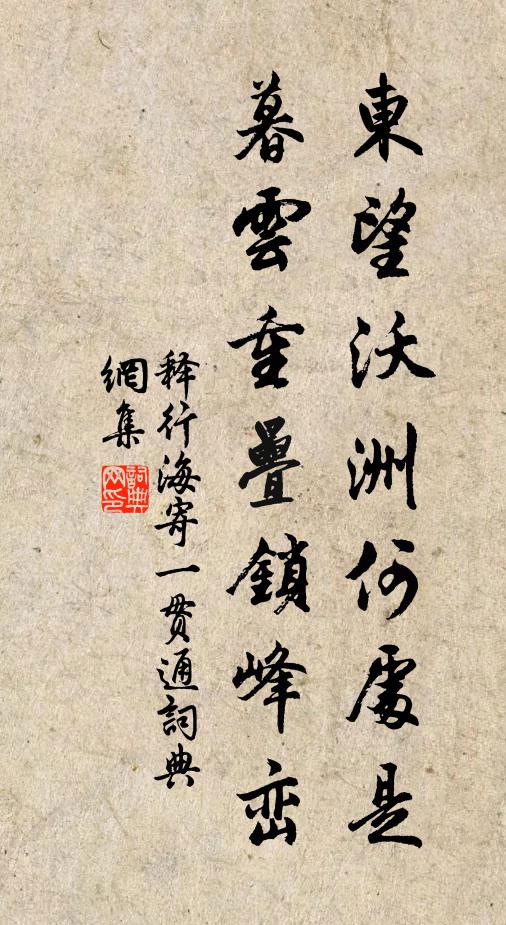 東望沃洲何處是
暮雲重疊鎖峰峦
释行海寄一贯通詞典
網集
詞典网印